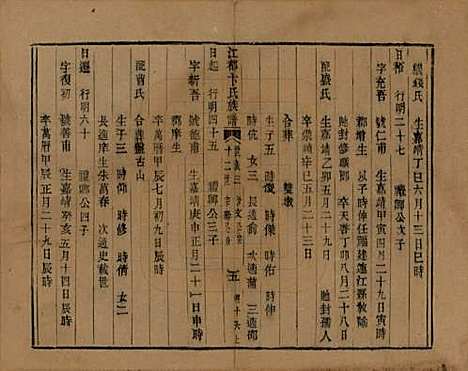 繼錢氏 生嘉靖丁巳六月十三日巳時
日 行明二十七 公次子
字充吾 號仁甫 生嘉靖甲寅四月二十九日寅時
郡增生 以子時任 福建連江縣教諭
貤封修職郎 卒天啓丁卯八月二十八日
配張氏 生嘉靖乙卯五月二十二日 貤封孺人
卒崇禎辛巳五月二十三日
合葬 雙墩
生子五 時 時傑 時佑 時伸
時伉 女三 長適 次適蕭 三適鄒
江都卞氏族譜
五
日 行明四十五 公三子
字新吾 號德甫 生嘉靖庚申正月二十一日申時
郡庠生 卒萬曆甲辰七月初九日辰時
配曹氏 合葬 古山
生子三 時仰 時修 時倩 女二
長適庠生張萬春 次適史載世
日遷 行明六十 公四子
字復初 號善甫 生嘉靖癸亥五月十四日辰時
卒萬曆甲辰正月二十九日辰時